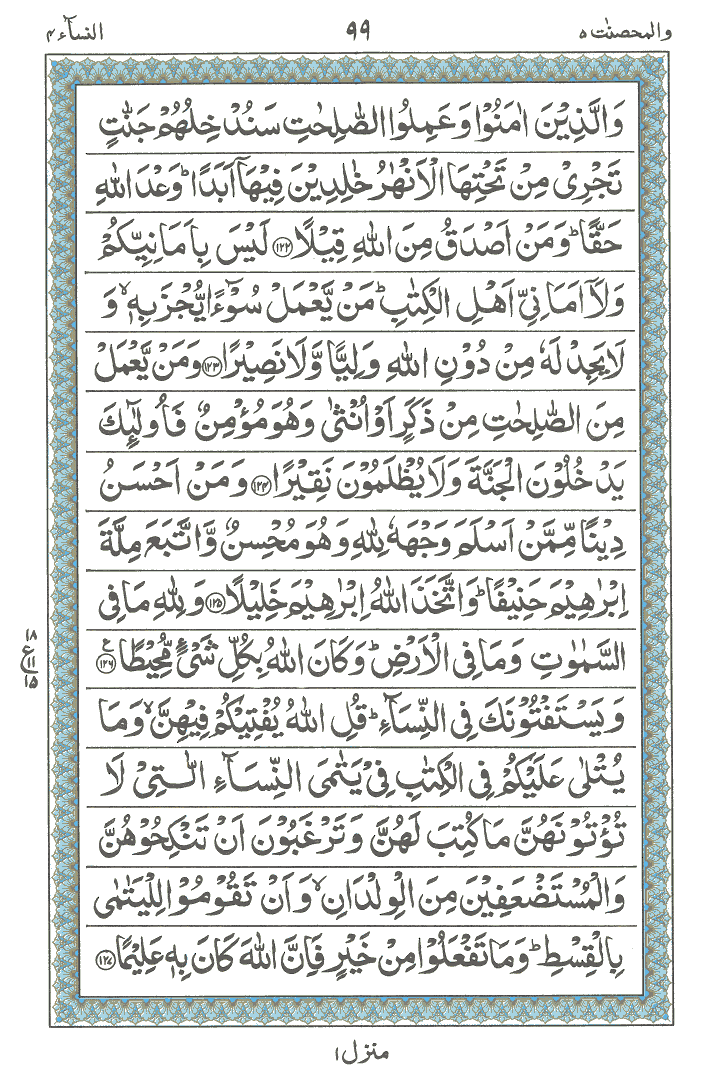 والمحصنٰت ٥ ٩٩ النسآء ٤
وَالَّذِيْنَ اٰمَنُوْا وَعَمِلُوا الصّٰلِحٰتِ سَنُدْخِلُهُمْ جَنّٰتٍ
تَجْرِيْ مِنْ تَحْتِهَا الْاَنْهٰرُ خٰلِدِيْنَ فِيْهَآ اَبَدًا ؕ وَعْدَ اللّٰهِ
حَقًّا ؕ وَمَنْ اَصْدَقُ مِنَ اللّٰهِ قِيْلًا ﴿١٢٢﴾ لَيْسَ بِاَمَانِيِّكُمْ
وَلَآ اَمَانِيِّ اَهْلِ الْكِتٰبِ ؕ مَنْ يَّعْمَلْ سُوْٓءًا يُّجْزَ بِهٖ ۙ وَ
لَا يَجِدْ لَهٗ مِنْ دُوْنِ اللّٰهِ وَلِيًّا وَّلَا نَصِيْرًا ﴿١٢٣﴾ وَمَنْ يَّعْمَلْ
مِنَ الصّٰلِحٰتِ مِنْ ذَكَرٍ اَوْ اُنْثٰى وَهُوَ مُؤْمِنٌ فَاُولٰٓئِكَ
يَدْخُلُوْنَ الْجَنَّةَ وَلَا يُظْلَمُوْنَ نَقِيْرًا ﴿١٢٤﴾ وَمَنْ اَحْسَنُ
دِيْنًا مِّمَّنْ اَسْلَمَ وَجْهَهٗ لِلّٰهِ وَهُوَ مُحْسِنٌ وَّاتَّبَعَ مِلَّةَ
اِبْرٰهِيْمَ حَنِيْفًا ؕ وَاتَّخَذَ اللّٰهُ اِبْرٰهِيْمَ خَلِيْلًا ﴿١٢٥﴾ وَلِلّٰهِ مَا فِي
السَّمٰوٰتِ وَمَا فِي الْاَرْضِ ؕ وَكَانَ اللّٰهُ بِكُلِّ شَيْءٍ مُّحِيْطًا ﴿١٢٦﴾ ع
١٨ ع ١١ ١٥
وَيَسْتَفْتُوْنَكَ فِي النِّسَآءِ ؕ قُلِ اللّٰهُ يُفْتِيْكُمْ فِيْهِنَّ ۙ وَمَا
يُتْلٰى عَلَيْكُمْ فِي الْكِتٰبِ فِيْ يَتٰمَى النِّسَآءِ الّٰتِيْ لَا
تُؤْتُوْنَهُنَّ مَا كُتِبَ لَهُنَّ وَتَرْغَبُوْنَ اَنْ تَنْكِحُوْهُنَّ
وَالْمُسْتَضْعَفِيْنَ مِنَ الْوِلْدَانِ ۙ وَاَنْ تَقُوْمُوْا لِلْيَتٰمٰى
بِالْقِسْطِ ؕ وَمَا تَفْعَلُوْا مِنْ خَيْرٍ فَاِنَّ اللّٰهَ كَانَ بِهٖ عَلِيْمًا ﴿١٢٧﴾
منزل ١